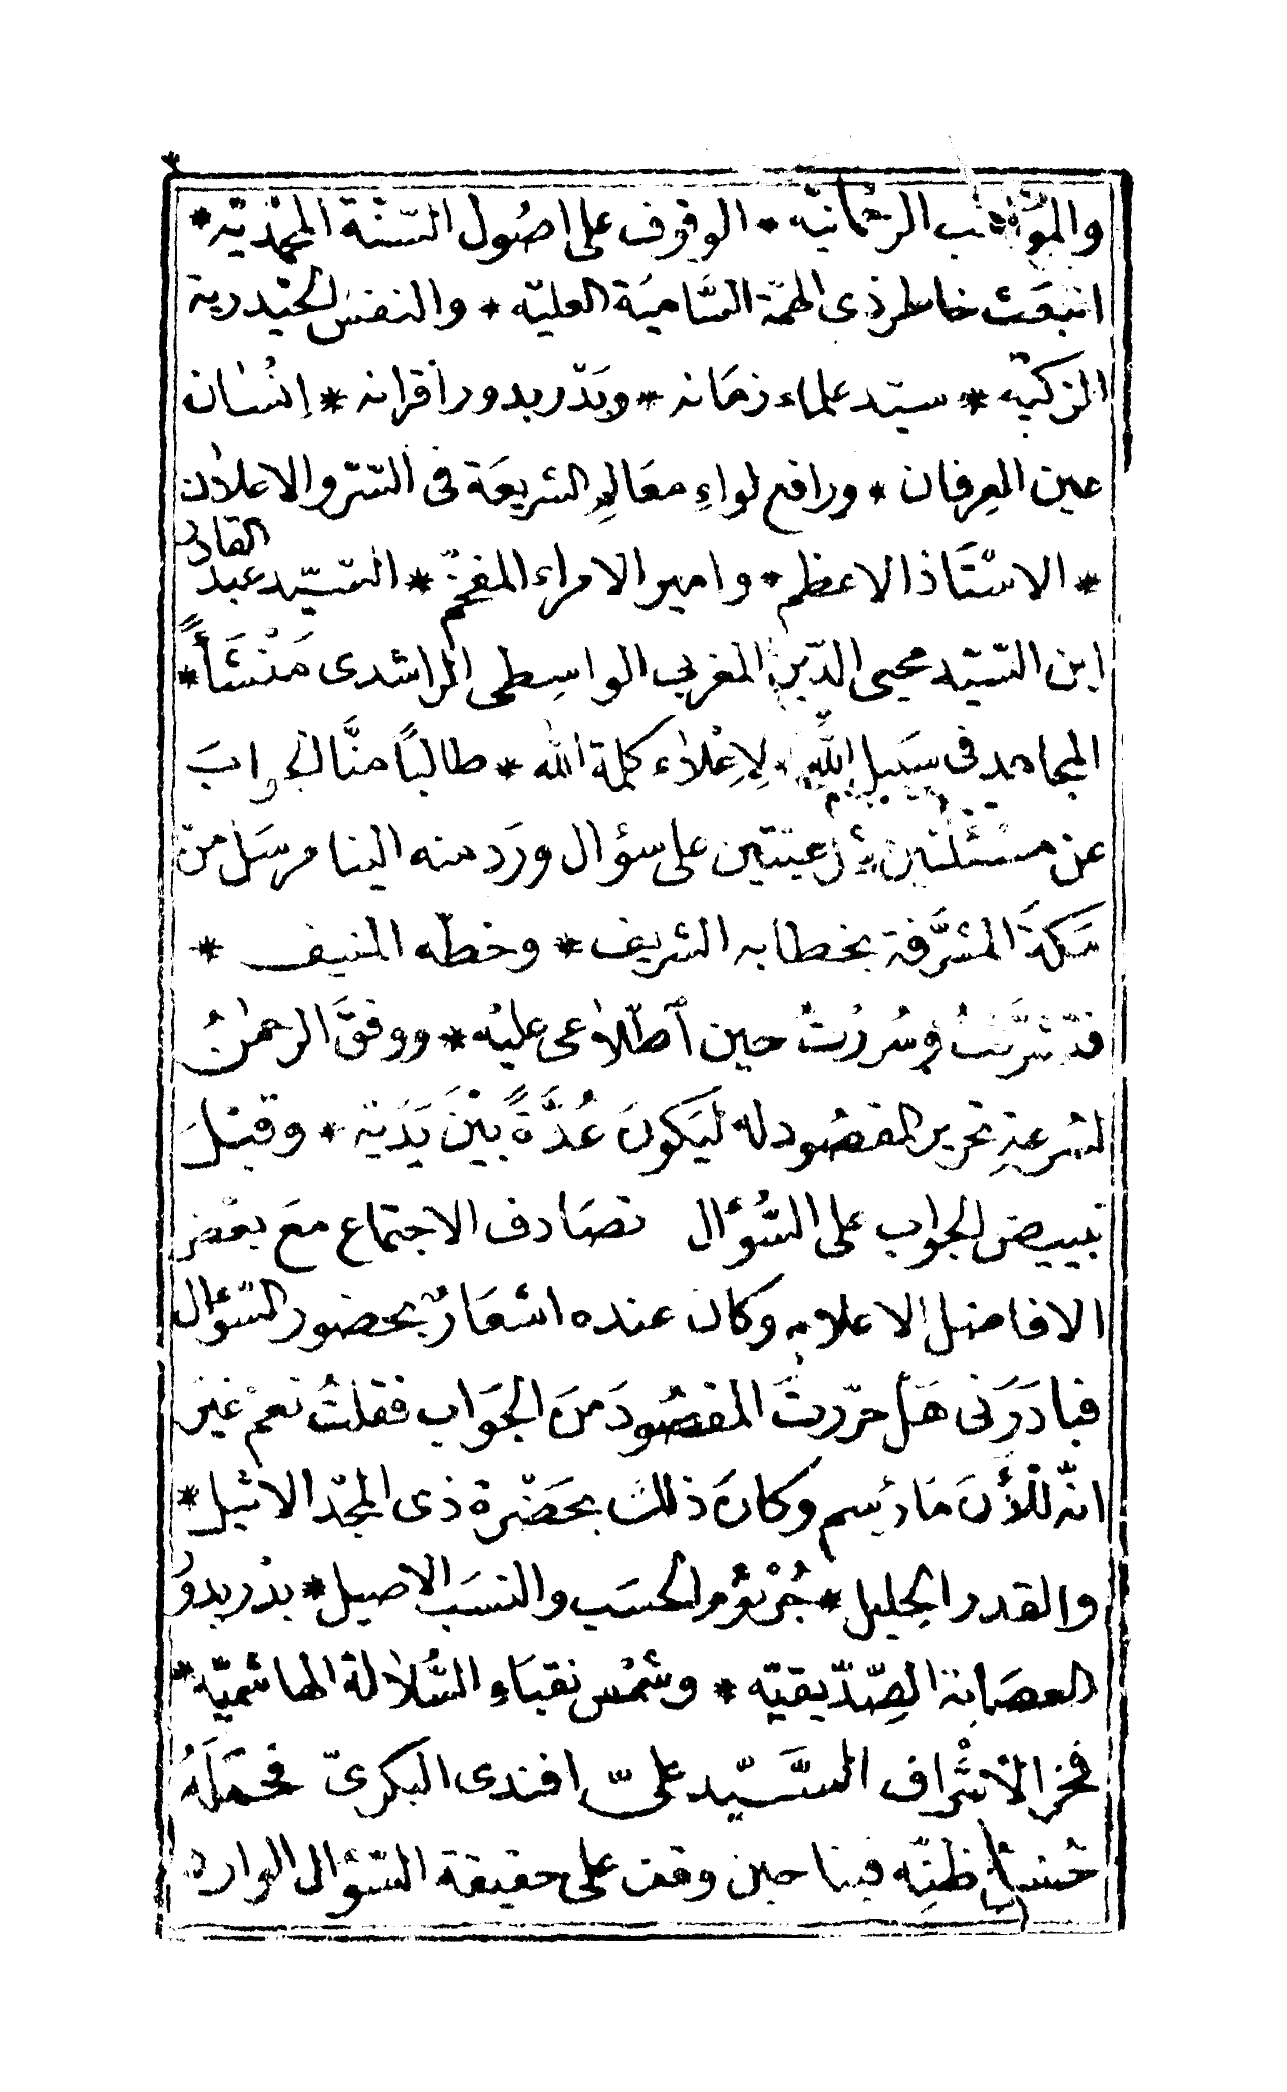 والمواهب الرحمانيّه * الوقوف على اصُول السّنّة المحمّديّه *
انبعَث خاطر ذى الهمّة السَّاميَة العليّه * والنفس الحَيْدرية
الزكيّه * سيّد علماء زمَانه * وبَدْر بدور أقرانه * اِنْسَان
عين العِرفان * ورافع لواءِ معَالِم الشريعَة فى السّرّ والاعلان
* الاسْتَاذ الاعظم * وامير الامراء المفخّم * السّيّد عبد القادر
ابن السّيّد محيى الدّين المغربي الواسِطى الراشدى مَنْشَأً *
المجاهد فى سَبيل اللّٰهِ لِاِعْلاء كلمة الله * طالبًا منَّا الجوابَ
عن مسْئلتين عينتين على سؤال ورَد منه الينا مرسَل من
مَكةَ المشرَّفة بخطابه الشريف * وخطّه المنيف *
قد شرَّفتُ وسُررْتُ حين اْطّلاعى عليْه * ووفقَ الرحمٰنُ
لسُرعةِ تحرير المقصُود له ليَكونَ عُدَّةً بيْنَ يَدَيْه * وقبْلَ
تبييض الجواب على السُّؤال تصَادف الاجتماع معَ بعْض
الافاضل الاعلام وكان عنده اشعَارٌ بحضور السّؤال
فبادَرَنى هَلْ حرّرتَ المقصُودَ مِنَ الجَوَاب فقلتُ نعمْ غيْر
انّه للْأنَ مَا رُسِم وكانَ ذلك بحَضْرة ذى المجْد الاثيل *
والقدر الجليل * جُرْثُوْمِ الحسَب والنسَب الاصيل * بدْر بدُو
العصَابة الصِّدّيقيّه * وشمْس نقبَاءِ السُّلالة الهاشميّه *
فخر الاشْراف السَّيّد علىّ افندى البكرىّ فحمَلَهُ
حُسْنُ ظنِّه فينا حين وقف على حقيقة السّؤال الوارد